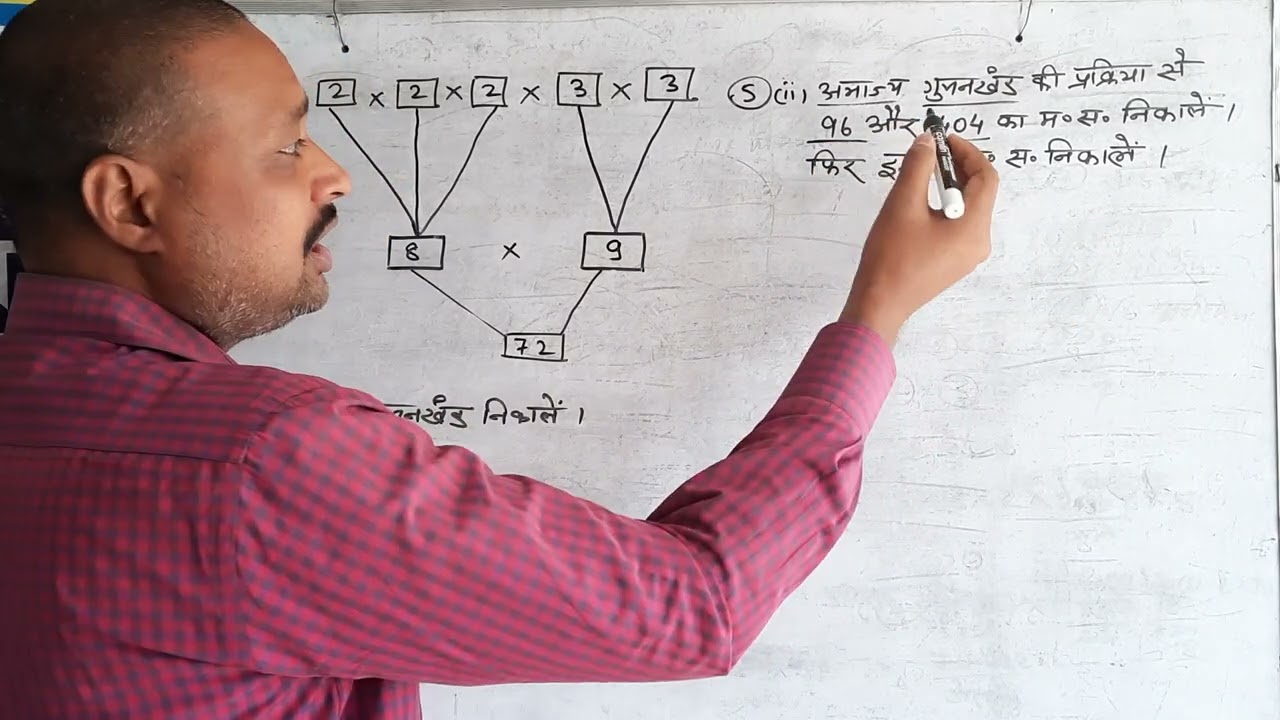 2 × 2 × 2 × 3 × 3
8 × 9
72
निकालें ।
5 (ii) अभाज्य गुणनखंड की प्रक्रिया से
96 और 404 का म॰ स॰ निकालें ।
फिर स॰ निकालें ।